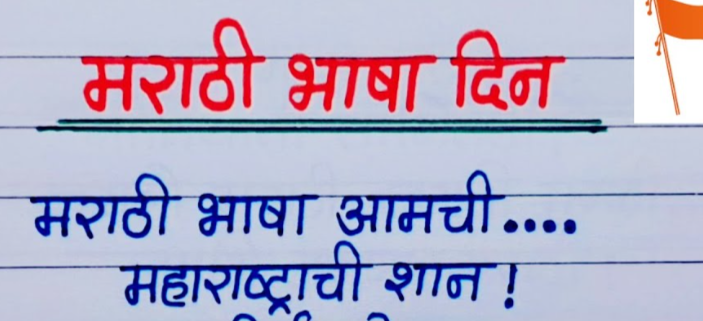 मराठी भाषा दिन
मराठी भाषा आमची....
महाराष्ट्राची शान !